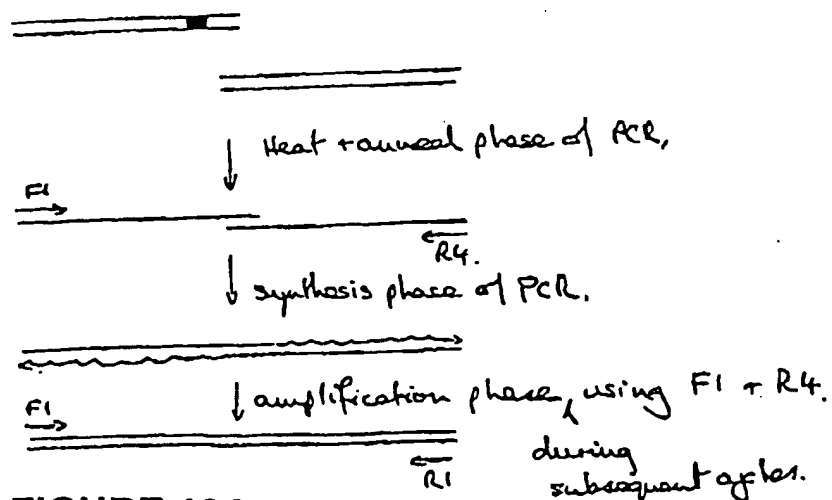 Heat + anneal phase of PCR,
F1
R4.
synthesis phase of PCR.
amplification phase, using F1 + R4.
during
subsequent cycles.
F1
R1